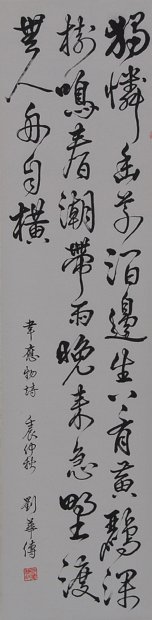 獨憐幽草澗邊生上有黃鸝深
樹鳴春潮帶雨晚來急野渡
無人舟自橫
韋應物詩 壬辰仲秋 劉華傳